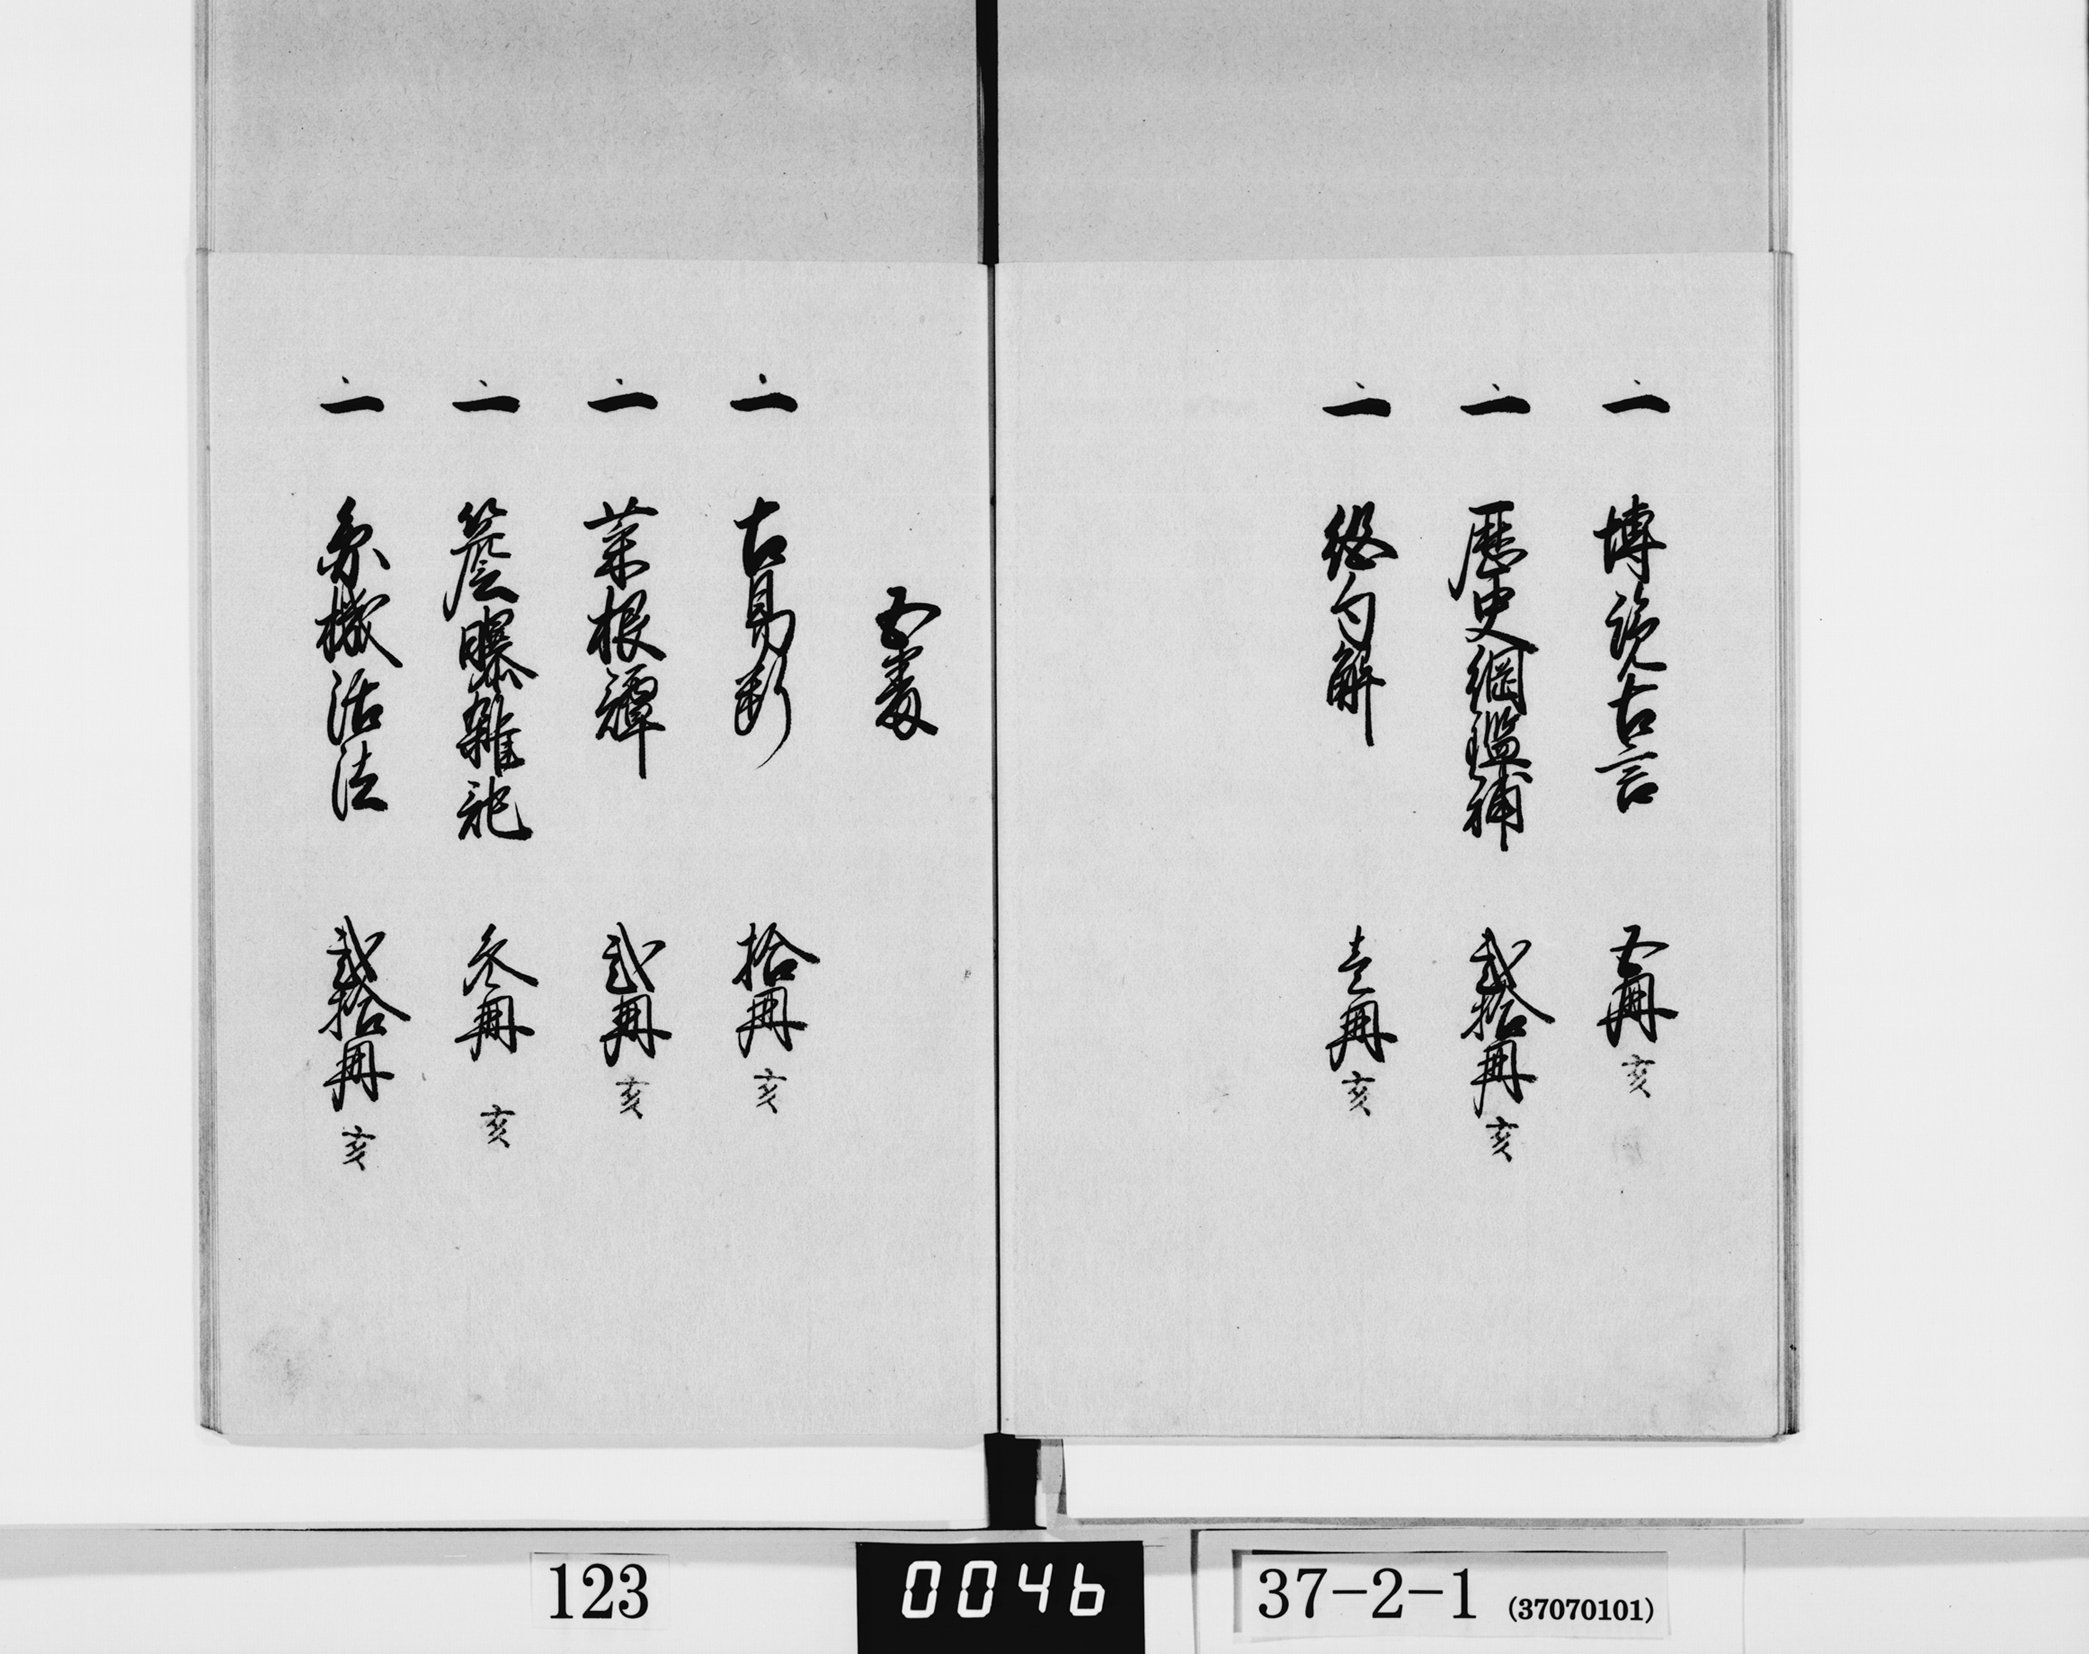 一 博説古言 五冊 亥
一 歴史綱鑑補 弐拾冊 亥
一 絶句解 壱冊 亥
五番
一 古易断 拾冊 亥
一 菜根譚 弐冊 亥
一 簷曝雑記 参冊 亥
一 象機活法 弐拾冊 亥
123
0046
37-2-1 (37070101)